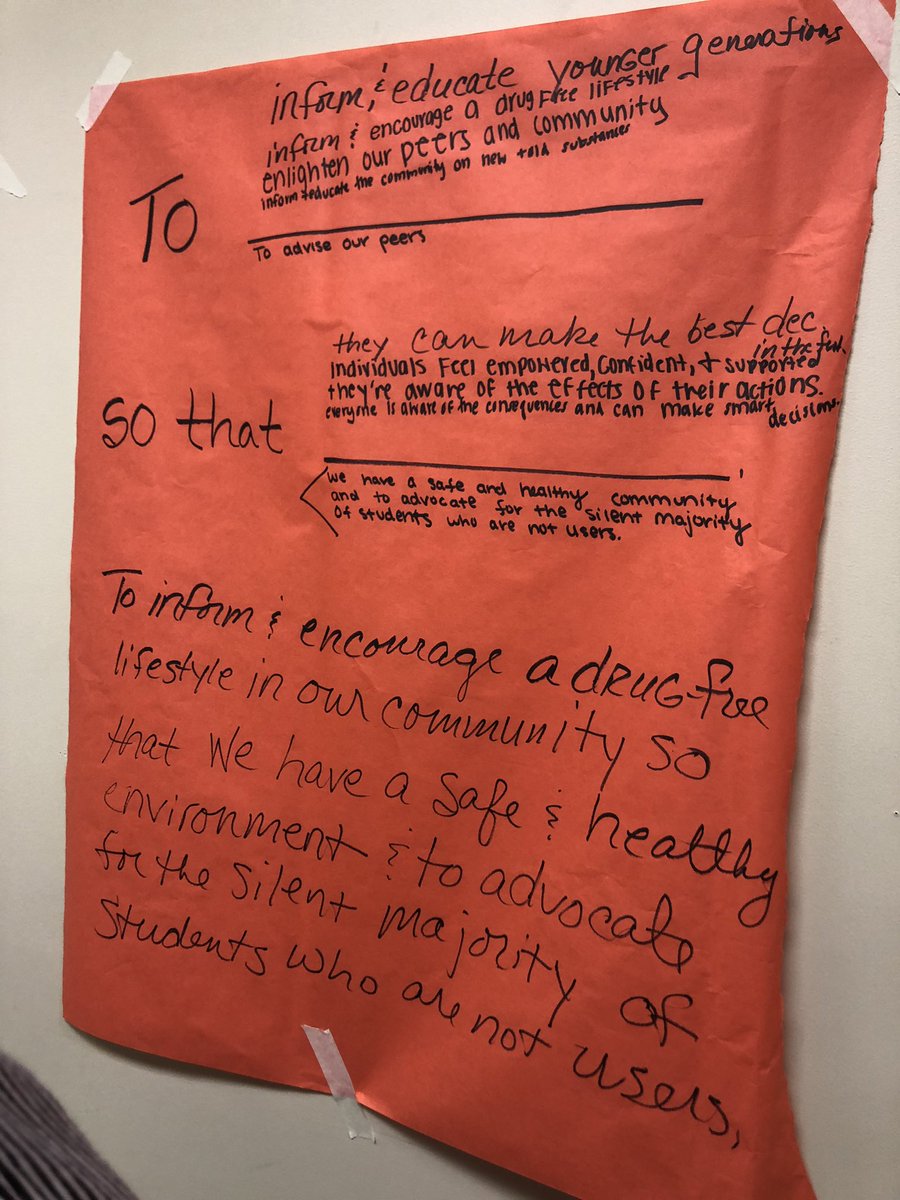 inform, & educate younger generations
inform & encourage a drug free lifestyle
enlighten our peers and community
inform & educate the community on new + old substances
To
To advise our peers
they can make the best dec.
in the fut.
Individuals feel empowered, confident, & supported
they're aware of the effects of their actions.
everyone is aware of the consequences and can make smart
decisions.
so that
we have a safe and healthy community
and to advocate for the silent majority
of students who are not users.
To inform & encourage a drug-free
lifestyle in our community so
that we have a safe & healthy
environment & to advocate
for the silent majority of
students who are not users.